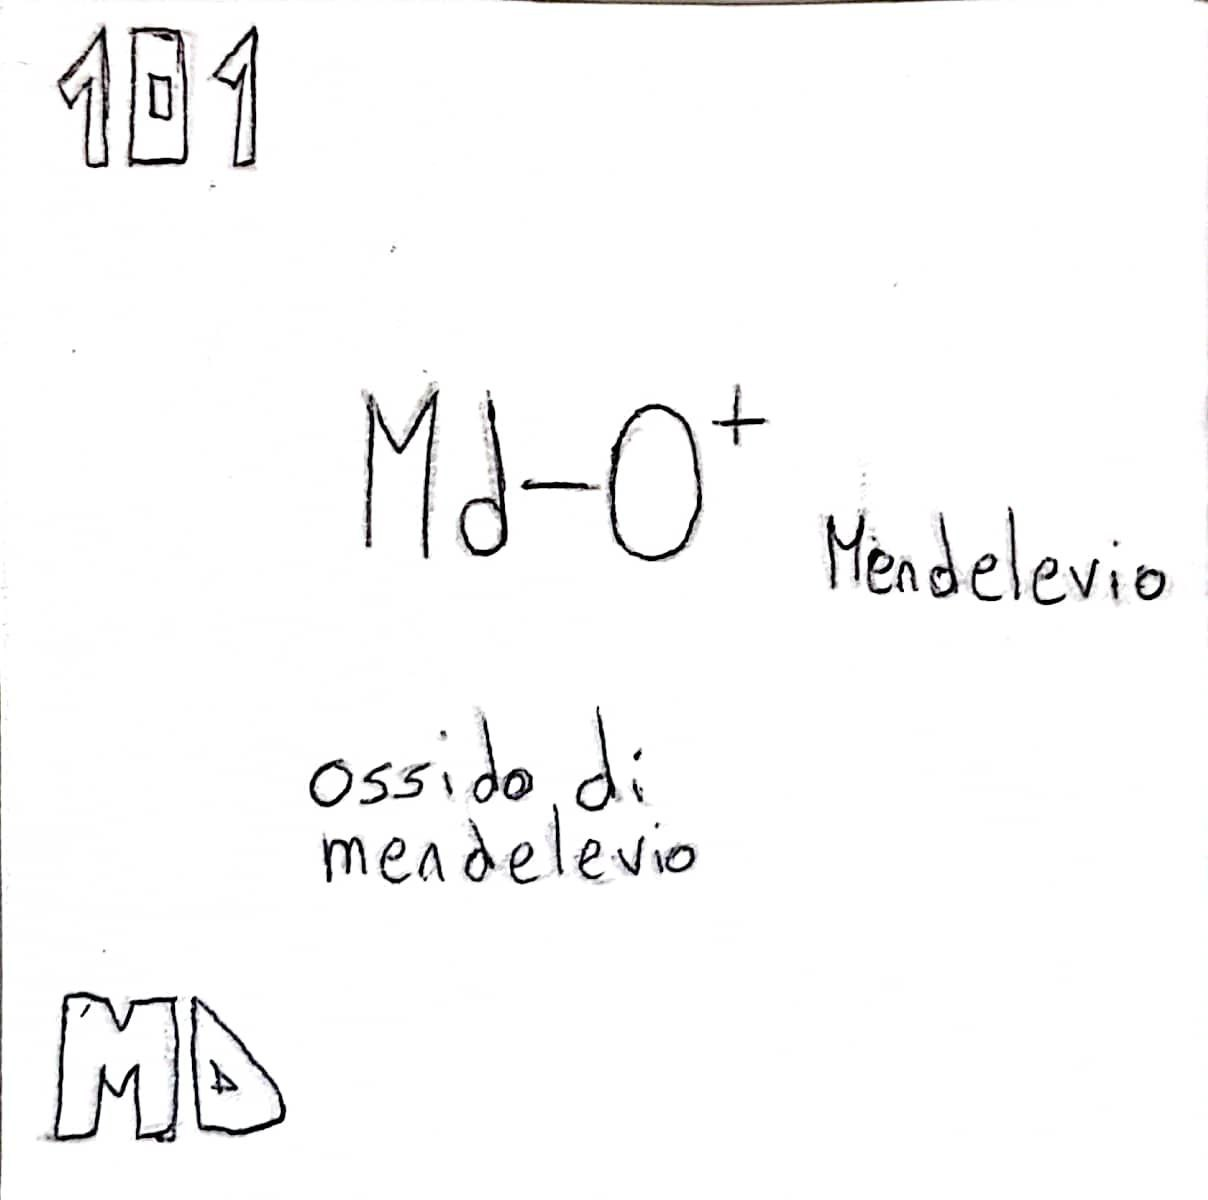 101
Md-O⁺
Mendelevio
ossido di
mendelevio
MD